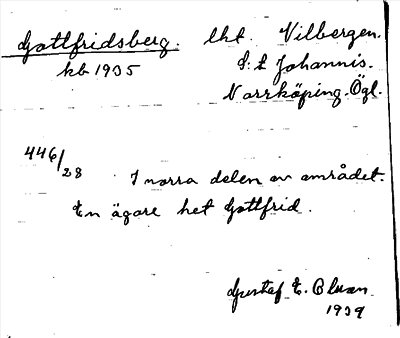 Gottfridsberg. lht. Vilbergen.
hb 1935 S:t Johannis.
Norrköping. Ögl.
446/28 I norra delen av området.
En ägare het Gottfrid.
Gustaf E. Olsson
1939